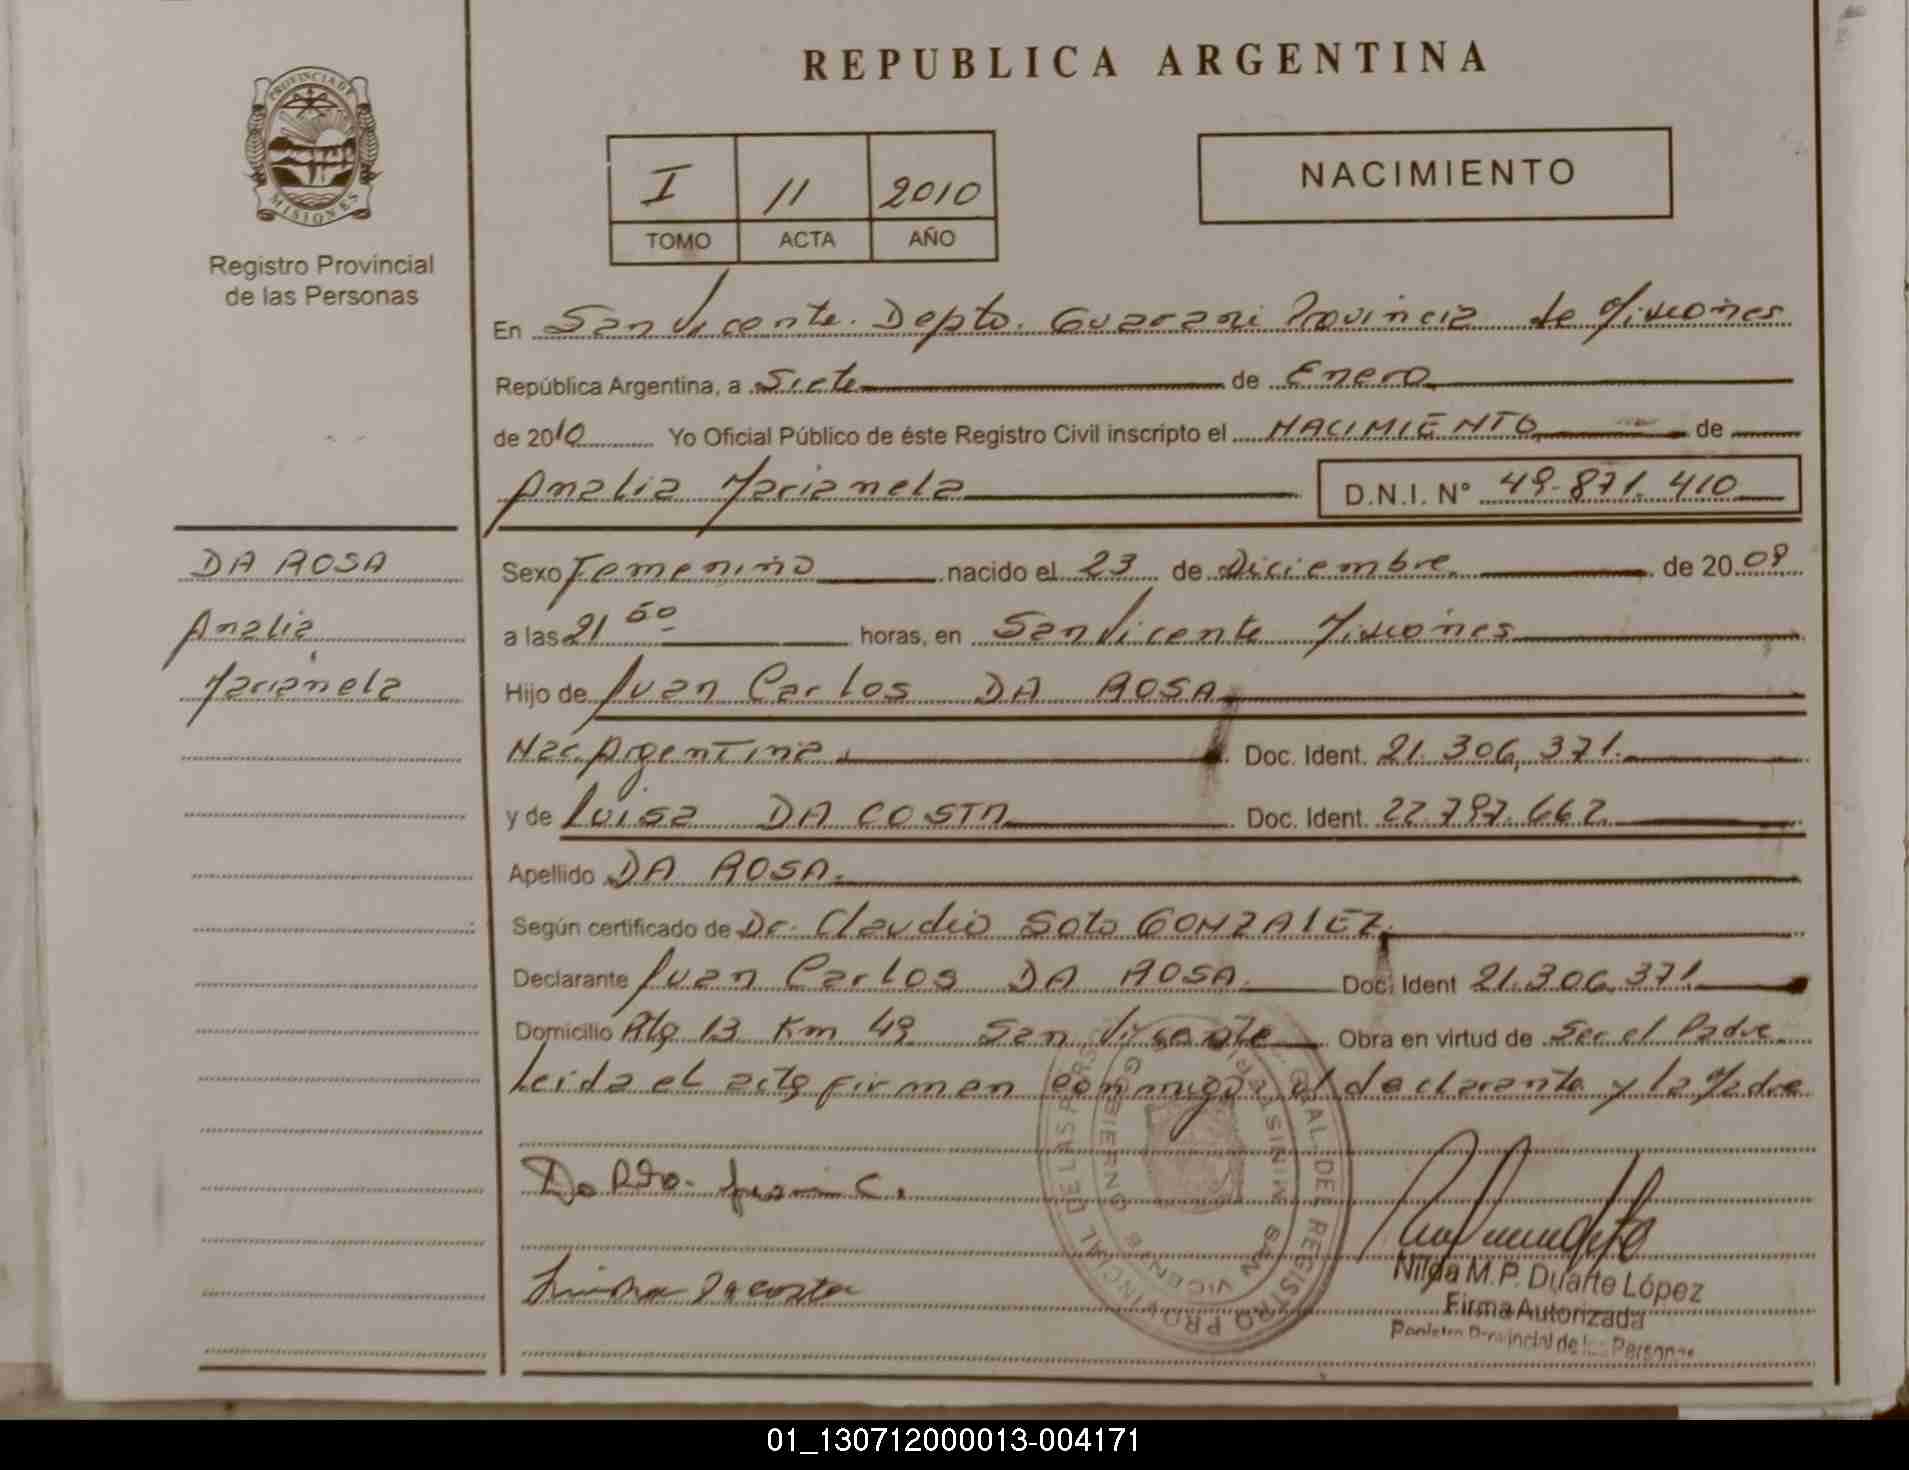 REPUBLICA ARGENTINA
PROVINCIA DE MISIONES
Registro Provincial
de las Personas
I 11 2010
TOMO ACTA AÑO
NACIMIENTO
En San Vicente. Depto. Guarani Provincia de Misiones
República Argentina, a Siete de Enero
de 2010 Yo Oficial Público de éste Registro Civil inscripto el NACIMIENTO de
Analia Marianela D.N.I. N° 49.871.410
DA ROSA
Analia
Marianela
Sexo Femenino nacido el 23 de Diciembre de 2009
a las 21 50 horas, en San Vicente Misiones
Hijo de Juan Carlos DA ROSA
Nac. Argentina Doc. Ident. 21.306.371.
y de Luisa DA COSTA Doc. Ident. 22.797.662
Apellido DA ROSA.
Según certificado de Dr. Claudio Soto GONZALEZ.
Declarante Juan Carlos DA ROSA Doc. Ident 21.306.371.
Domicilio Rta 13 Km 49 San Vicente Obra en virtud de Ser el Padre
Leida el acta firman conmigo el declarante y la Madre
Juan C.
Da costa
GRAL. DEL REGISTRO PROVINCIAL DE LAS PERS
MINISTER GOBIERNO
SAN VICENTE
Nilda M.P. Duarte López
Firma Autorizada
Registro Provincial de las Personas
01_130712000013-004171